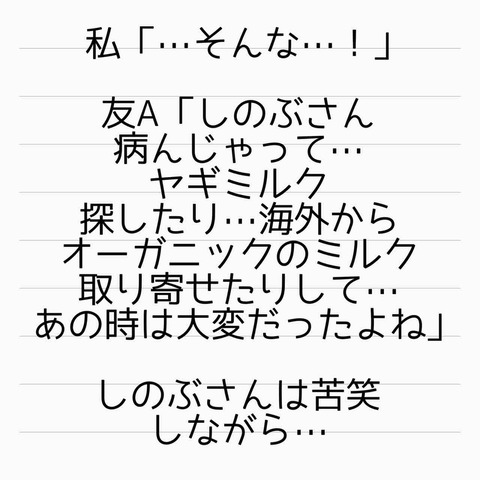 私「…そんな…！」
友A「しのぶさん
病んじゃって…
ヤギミルク
探したり…海外から
オーガニックのミルク
取り寄せたりして…
あの時は大変だったよね」
しのぶさんは苦笑
しながら…